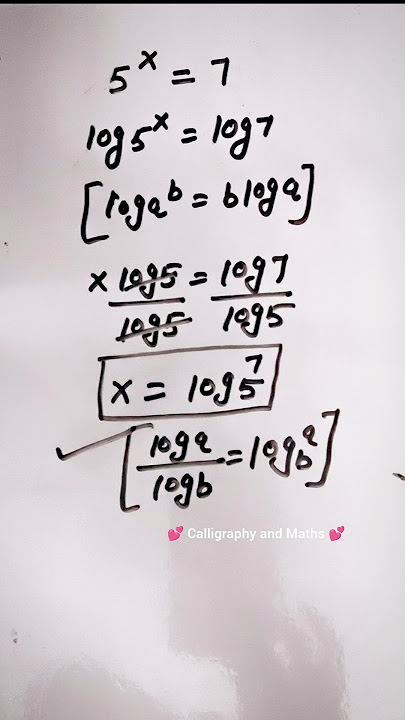 5^x = 7
log5^x = log7
[loga^b = bloga]
x log5/log5 = log7/log5
x = log5^7
[loga/logb = logb^a]
💕 Calligraphy and Maths 💕